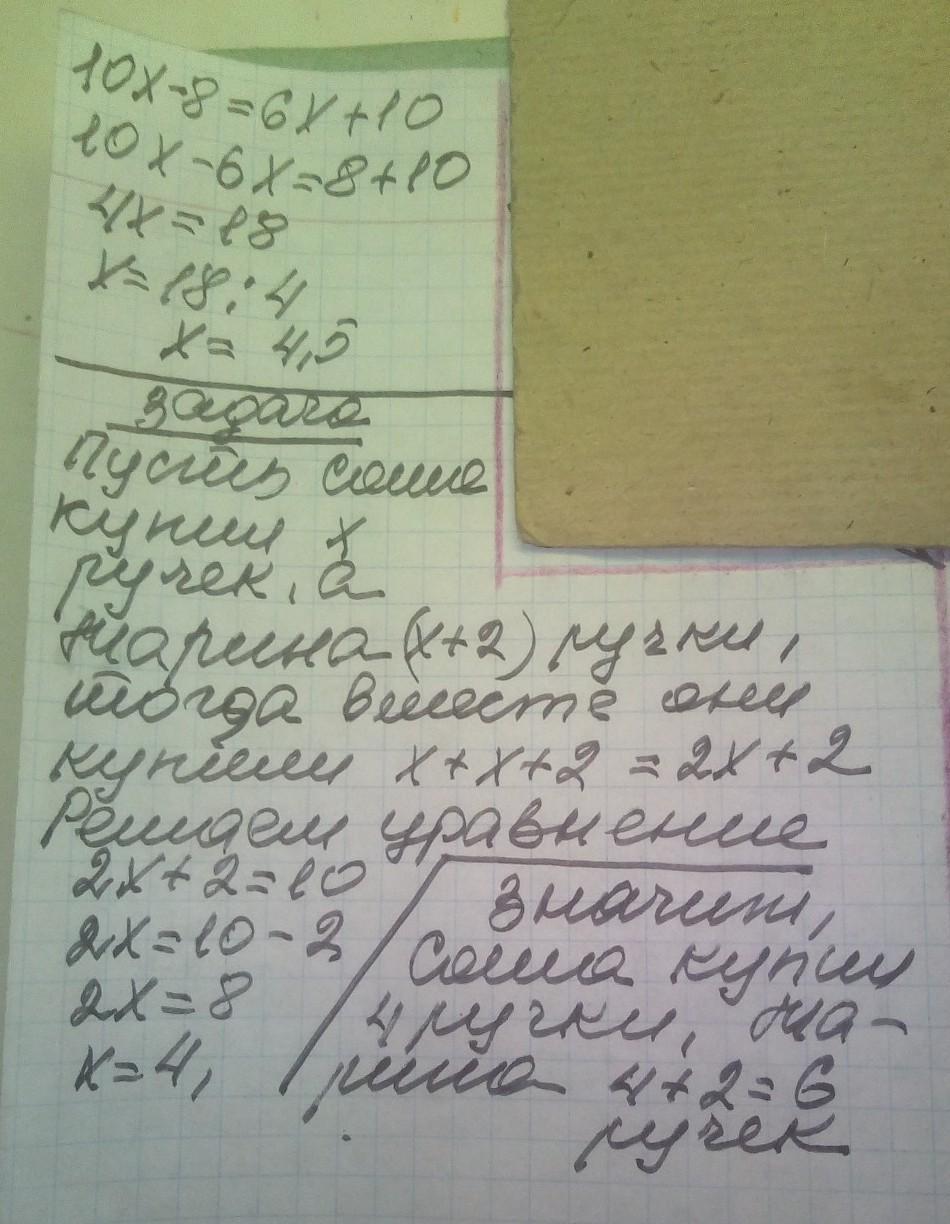 10x-8=6x+10
10x-6x=8+10
4x=18
x=18:4
x= 4,5
Задача
Пусть Саша
купил x
ручек, а
Марина (x+2) ручки,
тогда вместе они
купили x+x+2 =2x+2
Решаем уравнение
2x+2=10
2x=10-2
2x=8
x=4,
Значит,
Саша купил
4 ручки, Ма-
рина 4+2=6
ручек